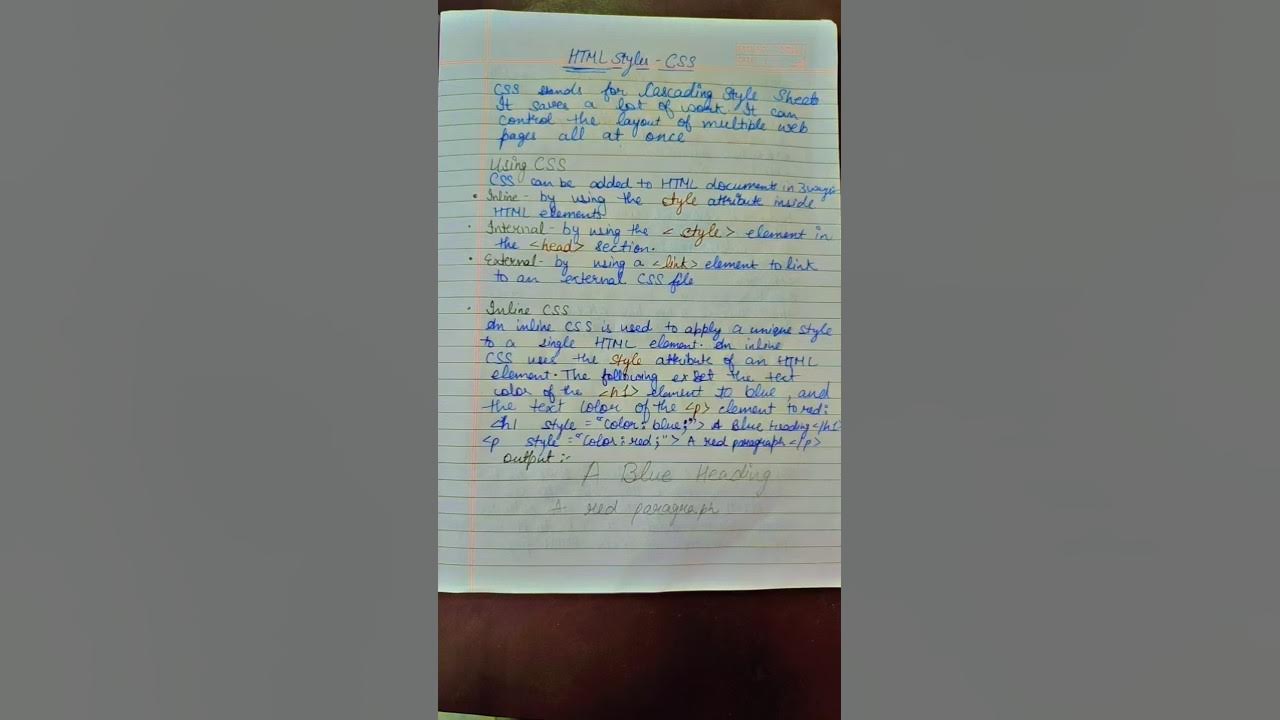 HTML Styles - CSS
CSS stands for Cascading Style Sheets
It saves a lot of work It can
control the layout of multiple web
pages all at once
Using CSS
CSS can be added to HTML document in 3 ways
• Inline - by using the style attribute inside
HTML elements
• Internal - by using the <style> element in
the <head> section.
• External - by using a <link> element to link
to an external CSS file
• Inline CSS
An inline CSS is used to apply a unique style
to a single HTML element. An inline
CSS uses the style attribute of an HTML
element. The following ex set the text
color of the <h1> element to blue, and
the text color of the <p> element to red:
<h1 style = "color: blue;"> A Blue Heading </h1
<p style = "color: red;"> A red paragraph </p>
output :-
A Blue Heading
A red paragraph